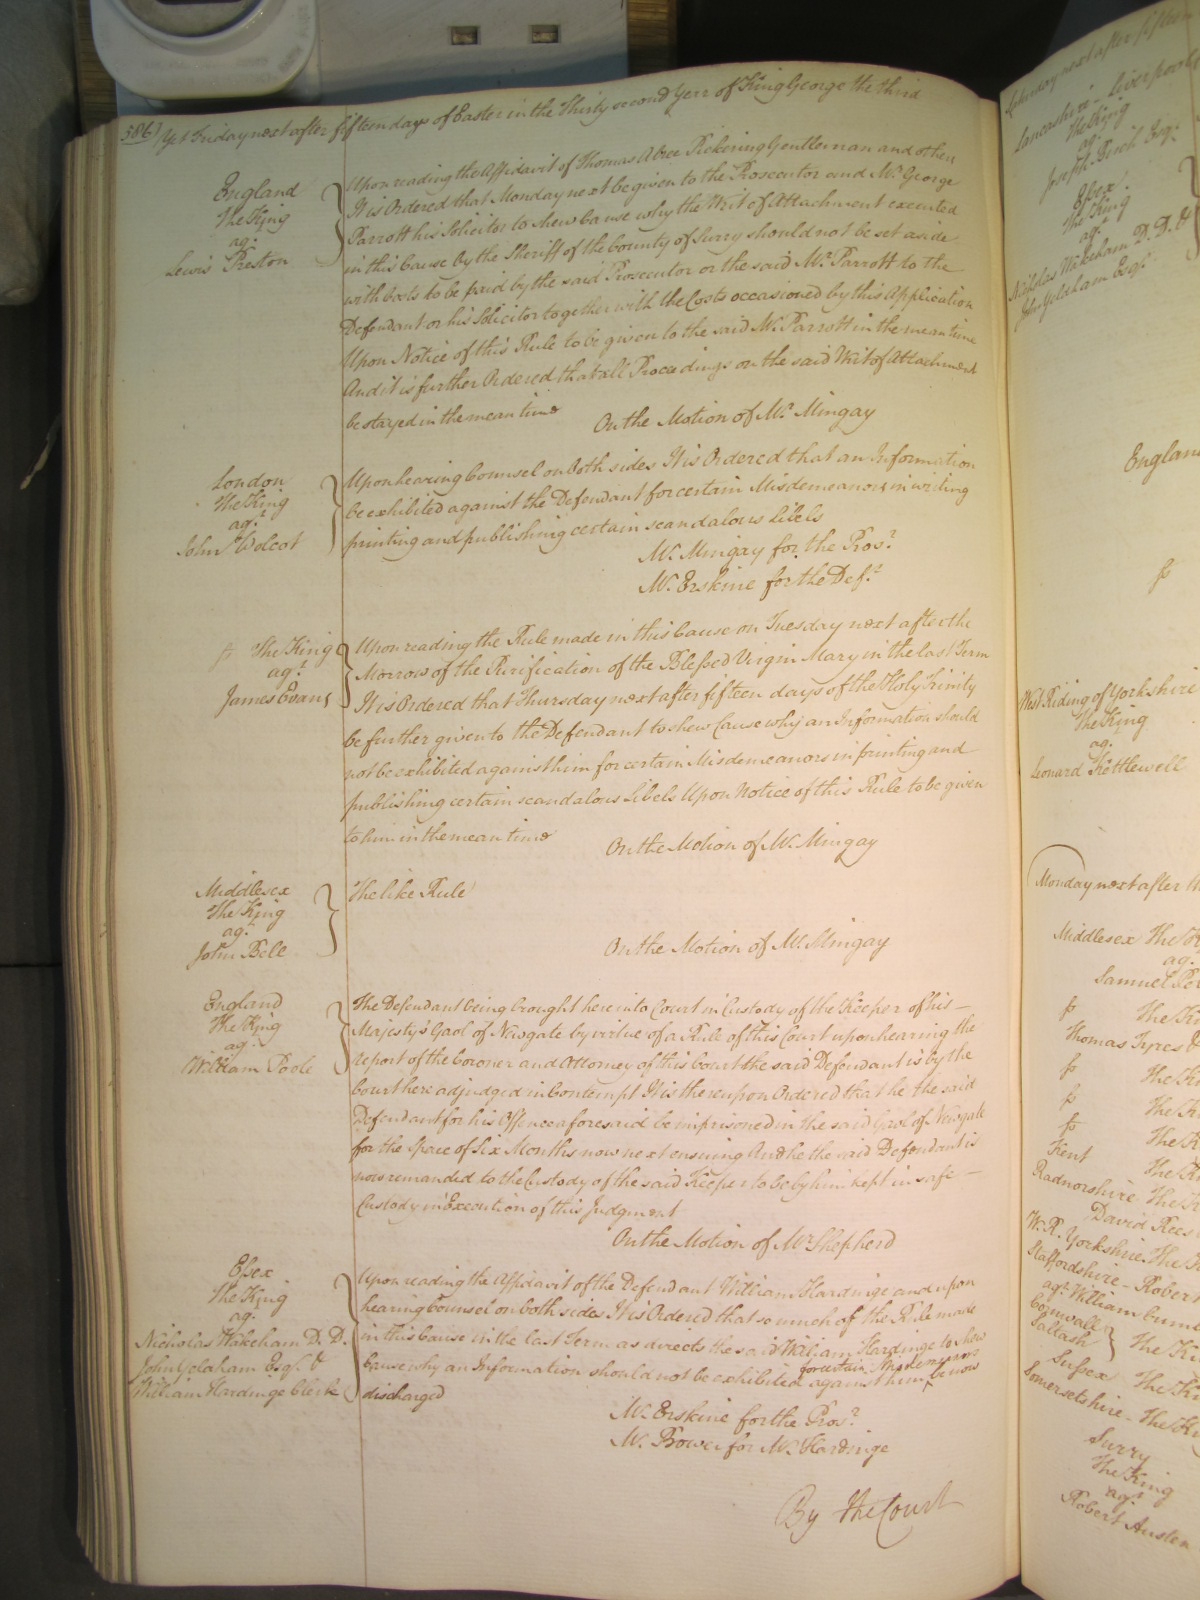 386) Yet Friday next after fifteen days of Easter in the Thirty second Year of King George the third
England
The King
agt.
Lewis Preston
Upon reading the Affidavit of Thomas Abree Pickering Gentleman and others
It is Ordered that Monday next be given to the Prosecutor and Mr. George
Parrott his Solicitor to shew Cause why the Writ of Attachment executed
in this Cause by the Sheriff of the County of Surry should not be set aside
with Costs to be paid by the said Prosecutor or the said Mr. Parrott to the
Defendant or his Solicitor together with the Costs occasioned by this Application
Upon Notice of this Rule to be given to the said Mr. Parrott in the mean time
And it is further Ordered that all Proceedings on the said Writ of Attachment
be stayed in the mean time
On the Motion of Mr. Mingay
London
The King
agt.
John Wolcot
Upon hearing Counsel on both sides It is Ordered that an Information
be exhibited against the Defendant for certain Misdemeanors in writing
printing and publishing certain scandalous Libels
Mr. Mingay for the Pros.r
Mr. Erskine for the Def.t
The King
agt.
James Evans
Upon reading the Rule made in this Cause on Tuesday next after the
Morrow of the Purification of the Blessed Virgin Mary in the last Term
It is Ordered that Thursday next after fifteen days of the Holy Trinity
be further given to the Defendant to shew Cause why an Information should
not be exhibited against him for certain Misdemeanors in printing and
publishing certain scandalous Libels Upon Notice of this Rule to be given
to him in the mean time
On the Motion of Mr. Mingay
Middlesex
The King
agt.
John Bell
The like Rule
On the Motion of Mr. Mingay
England
The King
agt.
William Poole
The Defendant being brought here into Court in Custody of the Keeper of his
Majesty's Gaol of Newgate by virtue of a Rule of this Court upon hearing the
report of the Coroner and Attorney of this Court the said Defendant is by the
Court here adjudged in Contempt It is thereupon Ordered that he the said
Defendant for his Offence aforesaid be imprisoned in the said Gaol of Newgate
for the Space of Six Months now next ensuing And he the said Defendant is
now remanded to the Custody of the said Keeper to be by him kept in safe
Custody in Execution of this Judgment
On the Motion of Mr Shepherd
Essex
The King
agt.
Nicholas Wakeham D.D.
John Yeldham Esq.r &
William Hardinge Clerk
Upon reading the Affidavit of the Defendant William Hardinge and upon
hearing Counsel on both sides It is Ordered that so much of the Rule made
in this Cause in the last Term as directs the said William Hardinge to shew
Cause why an Information should not be exhibited against him for certain Misdemeanors be now
discharged
Mr. Erskine for the Pros.r
Mr. Bower for Mr. Hardinge
By the Court
Saturday next after fifteen
Lancashire - Liverpool
The King
agt.
Joseph Birch Esq.r
Essex
The King
agt.
Nicholas Wakeham D.D. &
John Yeldham Esq.r
England
West Riding of Yorkshire
The King
agt.
Leonard Kettlewell
Monday next after
Middlesex The
agt.
Samuel
The
Thomas Tyres &
The
The
The
Kent The
Radnorshire The
David Rees
W. R. Yorkshire The
Staffordshire - Robert
agt. William
Cornwall
Saltash
The
Sussex The
Somersetshire - The
Surry
The King
agt.
Robert Austen